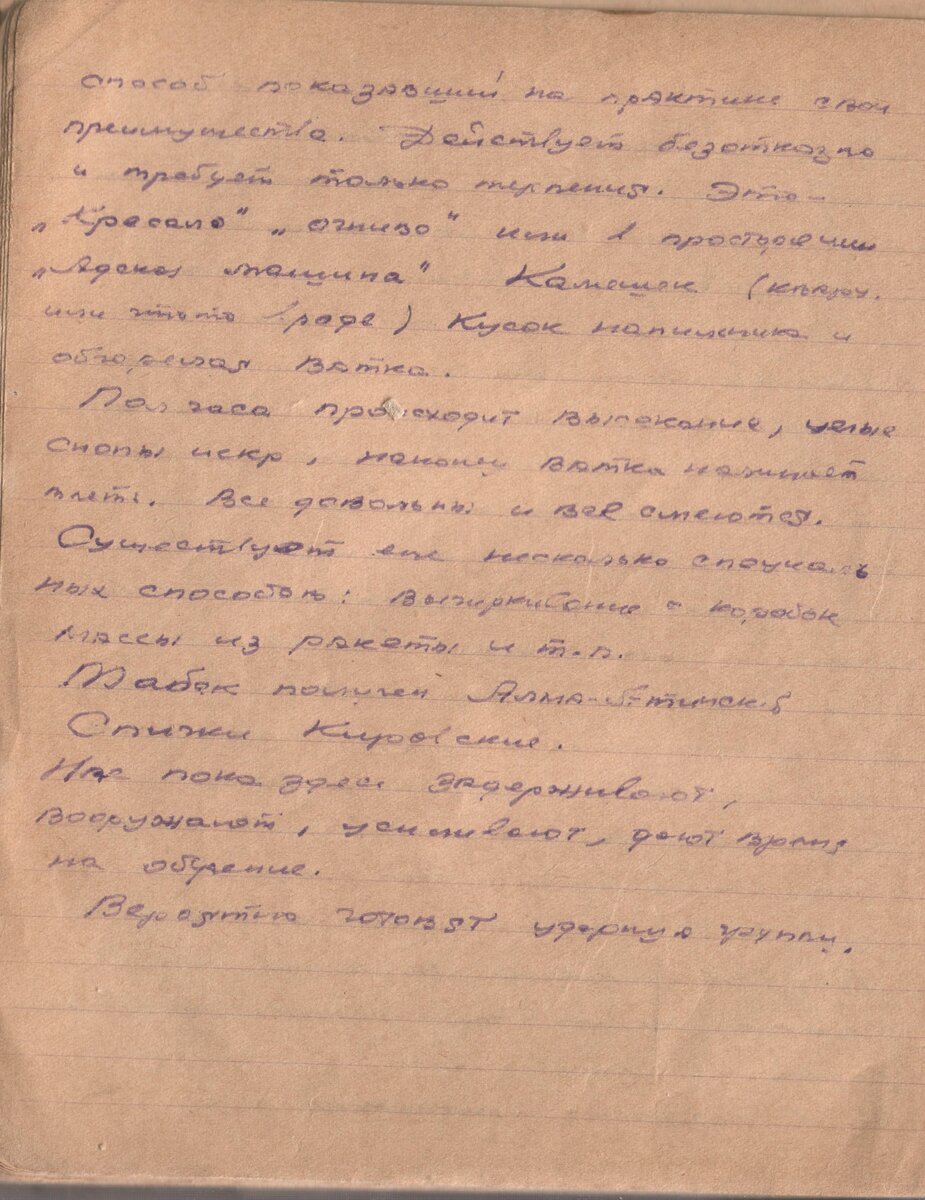 способ показавший на практике свои
преимущества. Действует безотказно
и требует только терпения. Это –
„Кресало" „огниво" или в простуречии
„Адская машина" Камешек (кварц.
или что то вроде) Кусок напильника и
обгорелая ватка.
Пол часа происходит высекание, целые
снопы искр, наконец ватка начинает
тлеть. Все довольны и все смеются.
Существует еще несколько случаль
ных способов: вычиркивание с коробок
массы из ракеты и т.п.
Табак получен Алма-Атинский
Спички Кировские.
Нас пока здесь задерживают,
вооружают, усиливают, дают время
на обучение.
Вероятно готовят ударную группу.